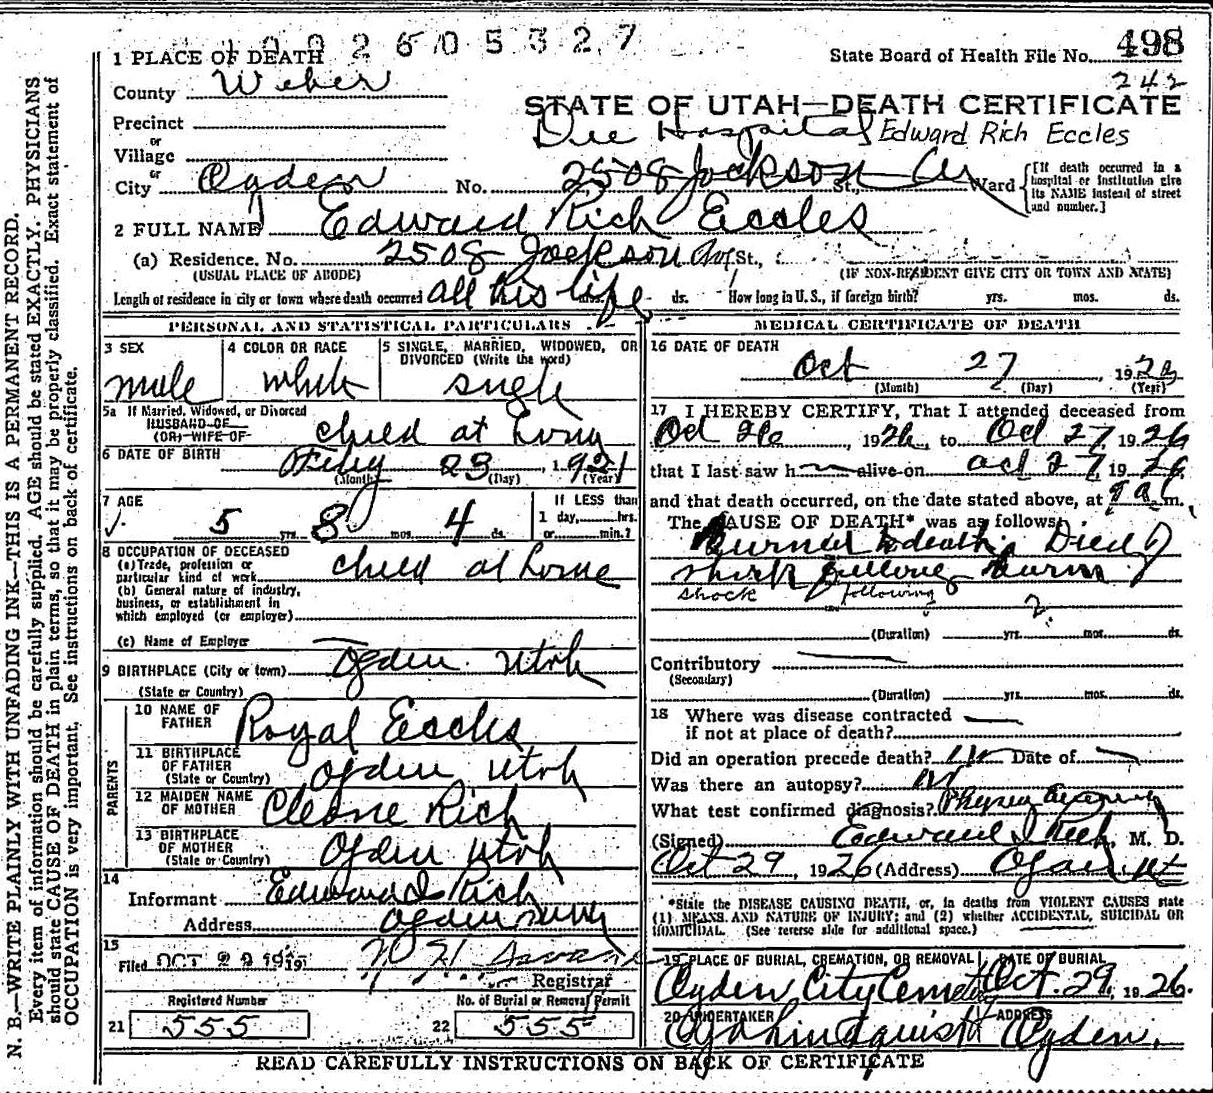 1 PLACE OF DEATH
1 0 0 2 6 0 5 3 2 7
State Board of Health File No. 498
242
County Weber
STATE OF UTAH—DEATH CERTIFICATE
Precinct
Dee Hospital Edward Rich Eccles
or
Village
or
City Ogden No. 2508 Jackson St., Ward
[If death occurred in a hospital or institution give its NAME instead of street and number.]
2 FULL NAME Edward Rich Eccles
(a) Residence. No. 2508 Jackson Av St.,
(USUAL PLACE OF ABODE) (IF NON-RESIDENT GIVE CITY OR TOWN AND STATE)
Length of residence in city or town where death occurred all his life ds. How long in U. S., if foreign birth? yrs. mos. ds.
PERSONAL AND STATISTICAL PARTICULARS
3 SEX male
4 COLOR OR RACE white
5 SINGLE, MARRIED, WIDOWED, OR DIVORCED (Write the word) single
5a If Married, Widowed, or Divorced
HUSBAND OF
(OR) WIFE OF child at home
6 DATE OF BIRTH Feby 23, 1921
(Month) (Day) (Year)
7 AGE 5 yrs. 8 mos. 4 ds.
If LESS than
1 day, hrs.
or min.?
8 OCCUPATION OF DECEASED
(a) Trade, profession or
particular kind of work child at home
(b) General nature of industry,
business, or establishment in
which employed (or employer)
(c) Name of Employer
9 BIRTHPLACE (City or town) Ogden Utah
(State or Country)
PARENTS
10 NAME OF
FATHER Royal Eccles
11 BIRTHPLACE
OF FATHER
(State or Country) Ogden Utah
12 MAIDEN NAME
OF MOTHER Cleone Rich
13 BIRTHPLACE
OF MOTHER
(State or Country) Ogden Utah
14
Informant Edward I Rich
Address Ogden
15
Filed OCT 29
Registrar
Registered Number
21 555
No. of Burial or Removal Permit
22 555
MEDICAL CERTIFICATE OF DEATH
16 DATE OF DEATH
Oct 27, 1926
(Month) (Day) (Year)
17 I HEREBY CERTIFY, That I attended deceased from
Oct 26, 1926, to Oct 27, 1926
that I last saw h alive on Oct 27 1926
and that death occurred, on the date stated above, at m.
The CAUSE OF DEATH* was as follows:
Burned to death. Died of
shock following burn
shock following
?
(Duration) yrs. mos. ds.
Contributory
(Secondary)
(Duration) yrs. mos. ds.
18 Where was disease contracted
if not at place of death?
Did an operation precede death? no Date of
Was there an autopsy? no
What test confirmed diagnosis?
(Signed) Edward I Rich, M. D.
Oct 29, 1926 (Address) Ogden Ut
*State the DISEASE CAUSING DEATH, or, in deaths from VIOLENT CAUSES state
(1) MEANS AND NATURE OF INJURY; and (2) whether ACCIDENTAL, SUICIDAL OR
HOMICIDAL. (See reverse side for additional space.)
19 PLACE OF BURIAL, CREMATION, OR REMOVAL DATE OF BURIAL
Ogden City Cemetery Oct. 29, 1926.
20 UNDERTAKER ADDRESS
Lindquist Ogden.
READ CAREFULLY INSTRUCTIONS ON BACK OF CERTIFICATE
N. B.—WRITE PLAINLY WITH UNFADING INK—THIS IS A PERMANENT RECORD.
Every item of information should be carefully supplied. AGE should be stated EXACTLY. PHYSICIANS
should state CAUSE OF DEATH in plain terms, so that it may be properly classified. Exact statement of
OCCUPATION is very important. See instructions on back of certificate.